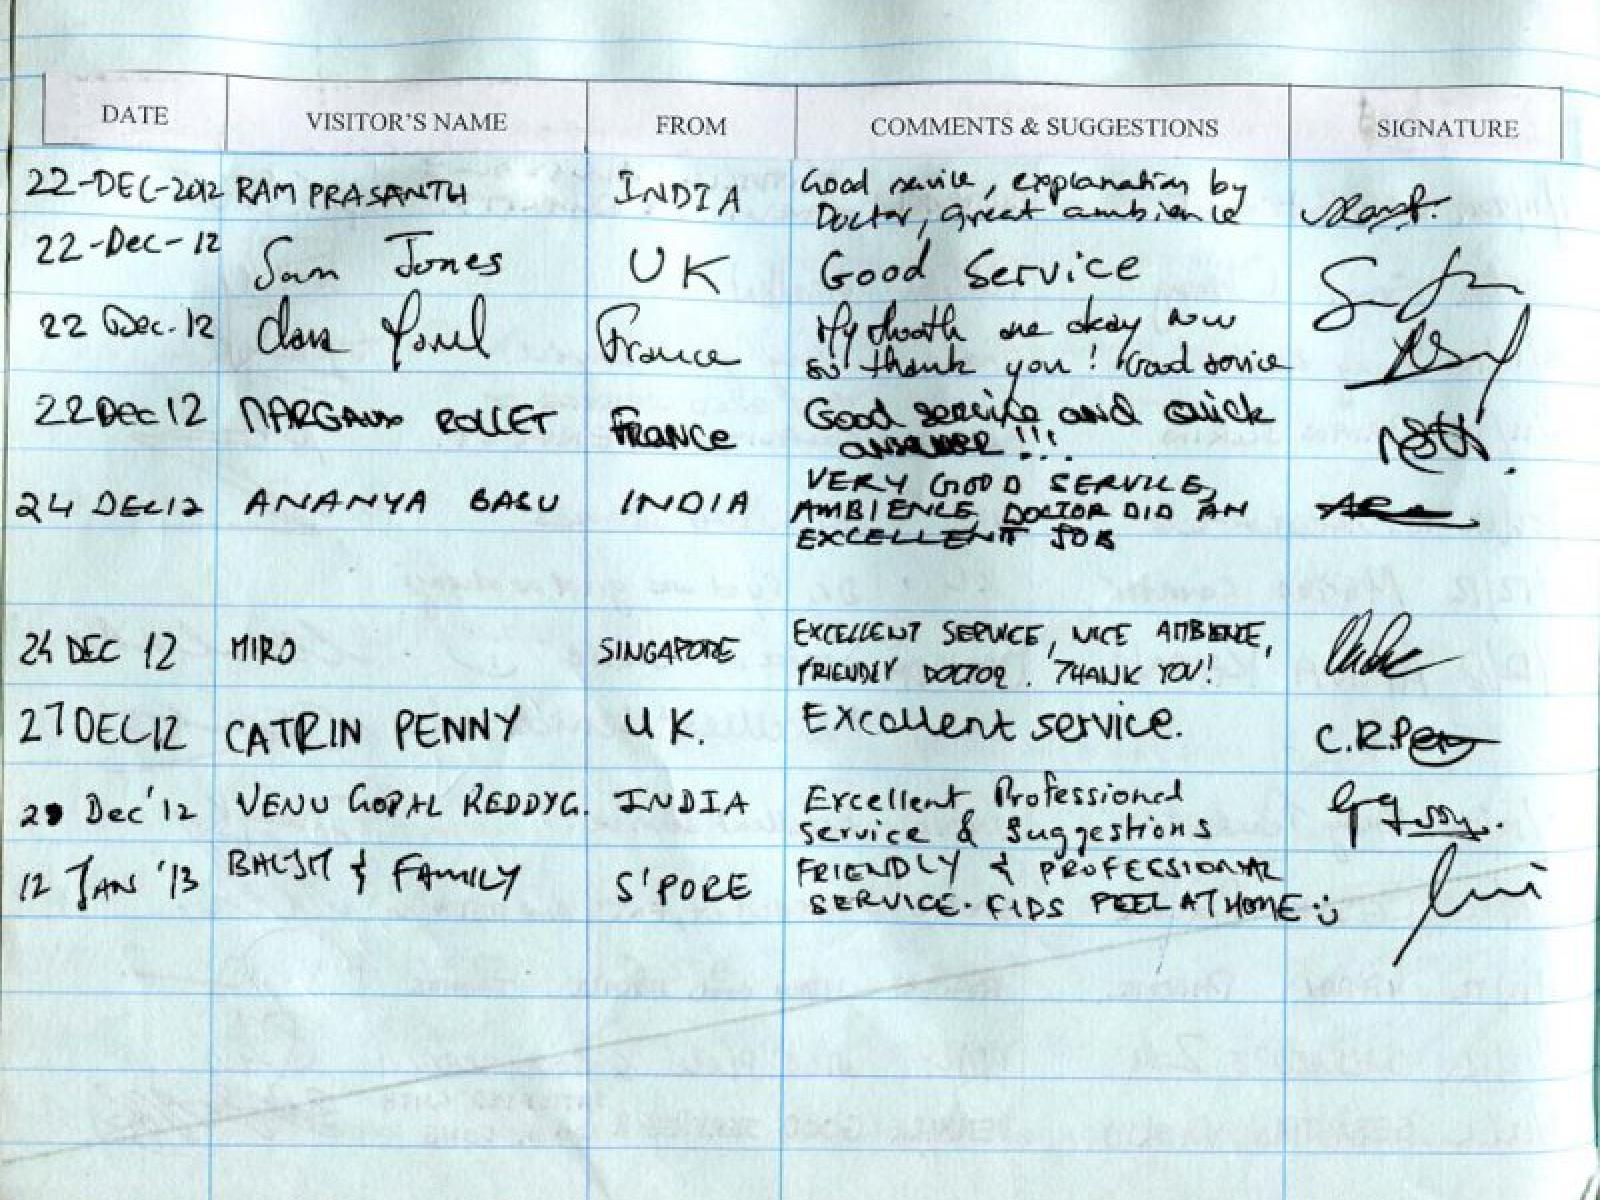 DATE VISITOR'S NAME FROM COMMENTS & SUGGESTIONS SIGNATURE
22-DEC-2012 RAM PRASANTH INDIA Good service, explanation by
Doctor, Great ambience
22-Dec-12 Sam Jones UK Good Service
22 Dec.12 France My are okay now
so thank you! Good service
22 Dec 12 MARGAUX ROLLET FRANCE Good service and quick
answer!!!
24 DEC 12 ANANYA BASU INDIA VERY GOOD SERVICE,
AMBIENCE DOCTOR DID AN
EXCELLENT JOB
24 DEC 12 MIRO SINGAPORE EXCELLENT SERVICE, NICE AMBIENCE,
FRIENDLY DOCTOR. THANK YOU!
27 DEC 12 CATRIN PENNY U.K. Excellent service. C.R.Penny
Dec'12 VENU GOPAL REDDY G. INDIA Excellent Professional
service & Suggestions
12 JAN '13 BALJIT & FAMILY S'PORE FRIENDLY & PROFESSIONAL
SERVICE. KIDS FEEL AT HOME :)